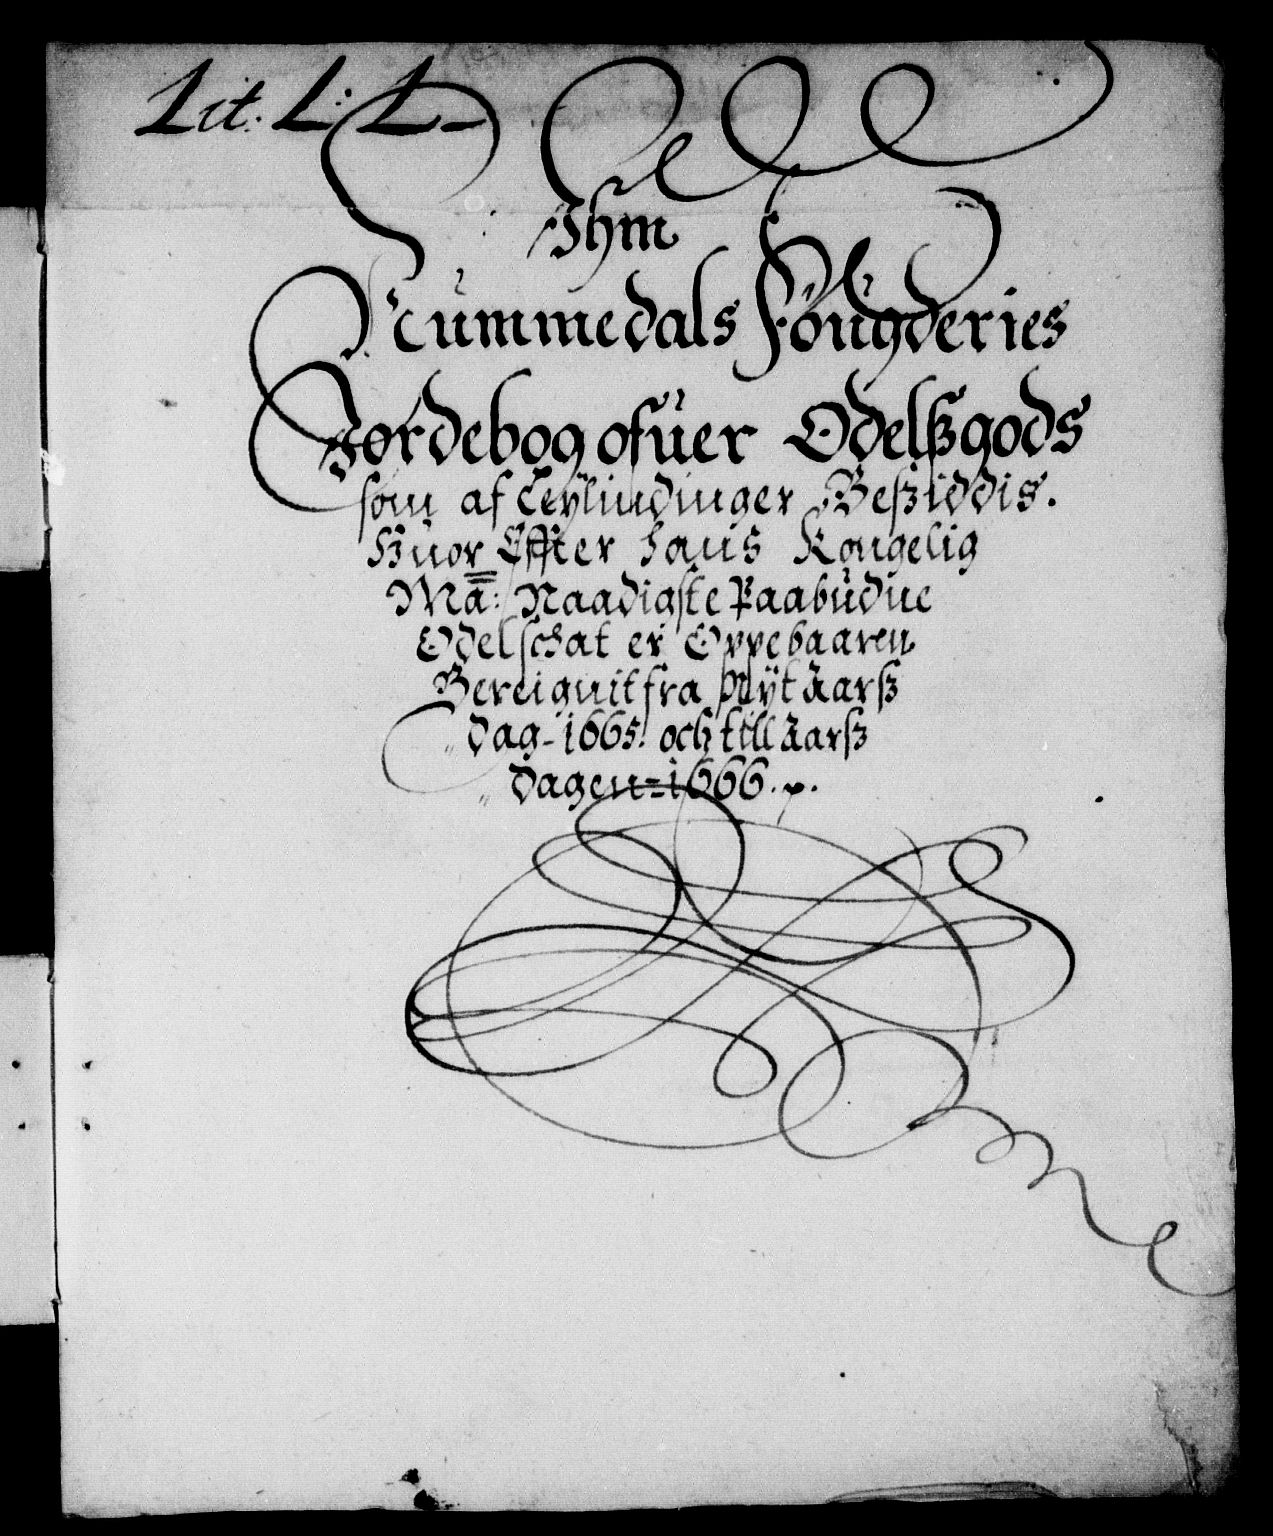 Lit: L: L-
Ihm
Nummedals Fougderies
Jordebog ofuer Odelssgods
som af Leylindinger Bessiddis.
Huor Effter hans Kongelig
Ma: Naadigste Paabudne
Odelschat er Oppebaaren
Bereignit fra Nyt Aarss
Dag- 1665. och till Aarss
Dagen=1666. p.